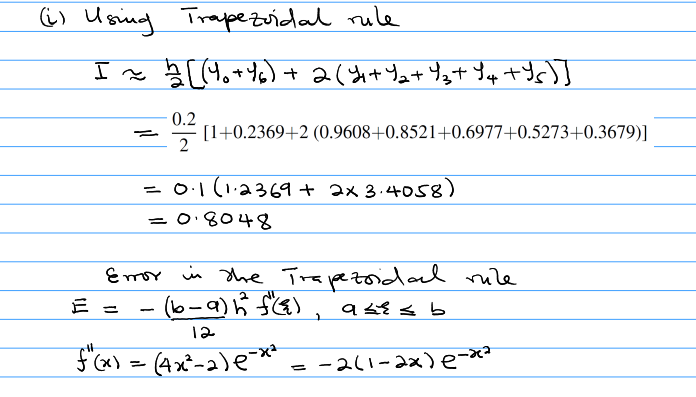 (i) Using Trapezoidal rule
I ≈ h/2 [(y₀+y₆) + 2(y₁+y₂+y₃+y₄+y₅)]
= 0.2/2 [1+0.2369+2 (0.9608+0.8521+0.6977+0.5273+0.3679)]
= 0.1(1.2369 + 2x3.4058)
= 0.8048
Error in the Trapezoidal rule
E = - (b-a)h² f''(ξ)/12 , a≤ξ≤b
f''(x) = (4x²-2)e^-x² = -2(1-2x)e^-x²